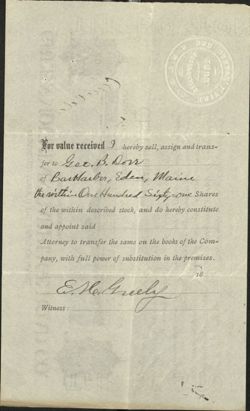 For value received I hereby sell, assign and trans-
fer to Geo. B. Dorr
of Bar Harbor, Eden, Maine
the within One Hundred Sixty one Shares
of the within described stock, and do hereby constitute
and appoint said
Attorney to transfer the same on the books of the Com-
pany, with full power of substitution in the premises.
18
E. H. Greely
Witness: